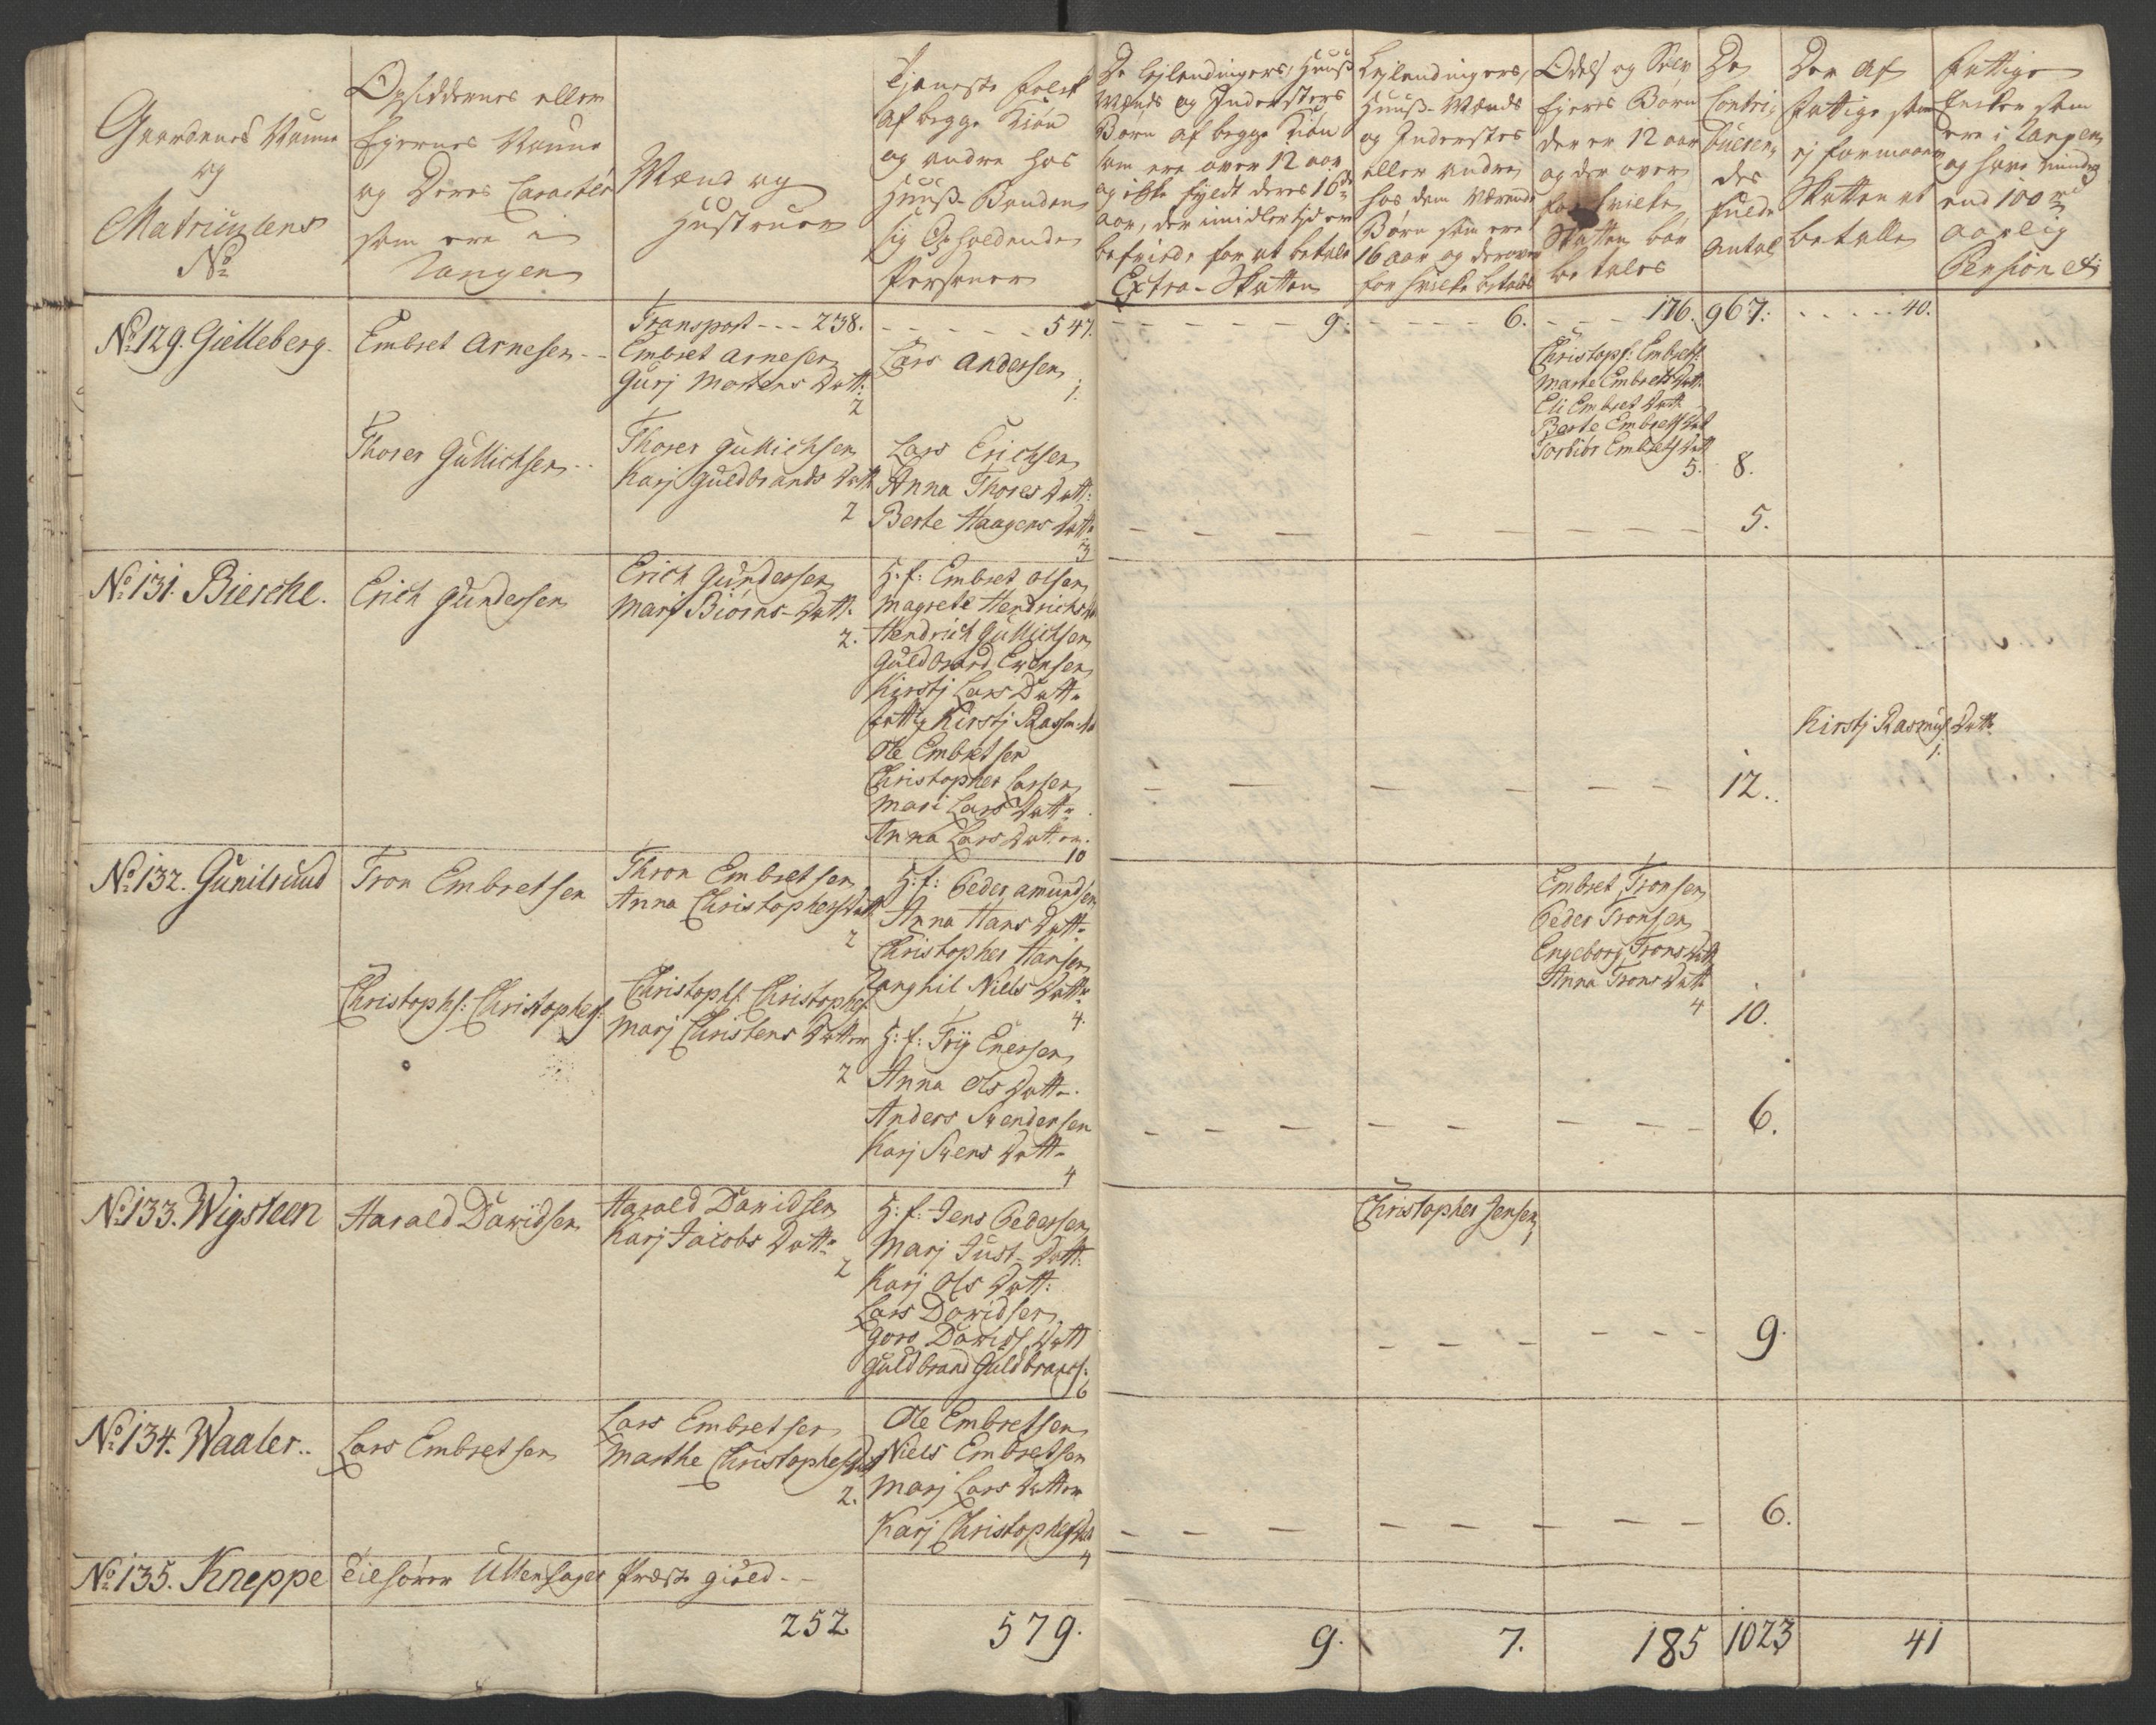 Gaardenes Naune
og
Matriculens
No
Opsiddernes eller
Ejernes Naune
og Deres Caracter
som ere i
Rangen
Mænd og
Hustruer
Tjeneste folck
af begge Kiøn
og andre hos
Huuß-Bonden
sig Opholdende
Personer
De Lejlendingers, Huuß
Mænds og Indersters
Børn af begge Kiøn
som ere over 12 aar
og ikke fyldt deres 16de
aar, der imidlertid er
befriede for at betale
Extra-Skatten
Lejlendingers,
Huuß-Mænds
og Inderstes
eller andre
hos dem værende
Børn som ere
16 aar og derover
for hvilke betales
Odels og Selv
Ejeres Børn
der er 12 aar
og der over
for hvilke
Skatten bør
betales
De
Contri-
buerendes
fulde
Antal
Der af
fattige som
ej formaaer
Skatten at
betalle
fattige
Encker som
ere i Rangen
og have mindre
end 100 rd
aarlig
Pension etc
Transport --- 238. - - - - - - 547. - - - - - - 9. - - - - - 6. - - - 176. 967: . . . . . 40.
No 129. Gielleberg.
Embret Arnesen
Embret Arnesen
Gurj Mortens Datt:
2
Lars Andersen
1.
Christoph: Embrets:
Marte Embrets Datt
Eli Embret Datt
Berte Embrets Dat
Torbiør Embrets Datt
5. 8.
Thorer Gullichsen
Thorer Gullichsen
Karj Guldbrands Datt
2
Lars Erichsen
Anna Thores Datt:
Berte Haagens Datt:
3
5.
No 131. Biercke.
Erich Gundersen
Erich Gundersen
Marj Biørns-Datt:
2.
H: f: Embret Olsen
Magrete Hendrichs
Hendrich Gullichsen
Guldbrand Evensen
Kirstj Lars Datt:
fattig Kirstj Rasm:
Ole Embretsen
Christopher Larsen
Mari Lars Datt:
Anna Lars Datter.
10
12.
Kirstj Rasmus Datt:
1.
No 132. Gunilruud
Tron Embretsen
Thron Embretsen
Anna Christophers Datt
2
H: f: Peder Amundsen
Anna Hans Datt:
Christopher Hansen
Ranghil Niels Datt:
4.
Embret Tronsen
Peder Tronsen
Engeborg Trons Datt
Anna Trons Datt
4 10.
Christophs: Christophers:
Christophs: Christophers:
Marj Christens Datter
2
H: f: Trÿ Enersen
Anna Ols Datt:
Anders Svendersen
Karj Svens Datt:
4
6.
No 133. Wigsteen
Harald Davidsen
Harald Davidsen
Karj Jacobs Datt:
2
H: f: Jens Pedersen
Marj Just-Datt:
Karj Ols Datt:
Lars Davidsen
Goro Davids Datt
Guldbrand Guldbrands:
6
Christopher Jensen
1
9.
No 134. Waaler..
Lars Embretsen
Lars Embretsen
Marthe Christophers Dat
2.
Ole Embretsen
Niels Embretsen
Marj Lars Datter
Karj Christophers Dat
4
6.
No 135. Kneppe tilhører Ullensager Præste gield --
252. 579. 9. 7. 185 1023 41